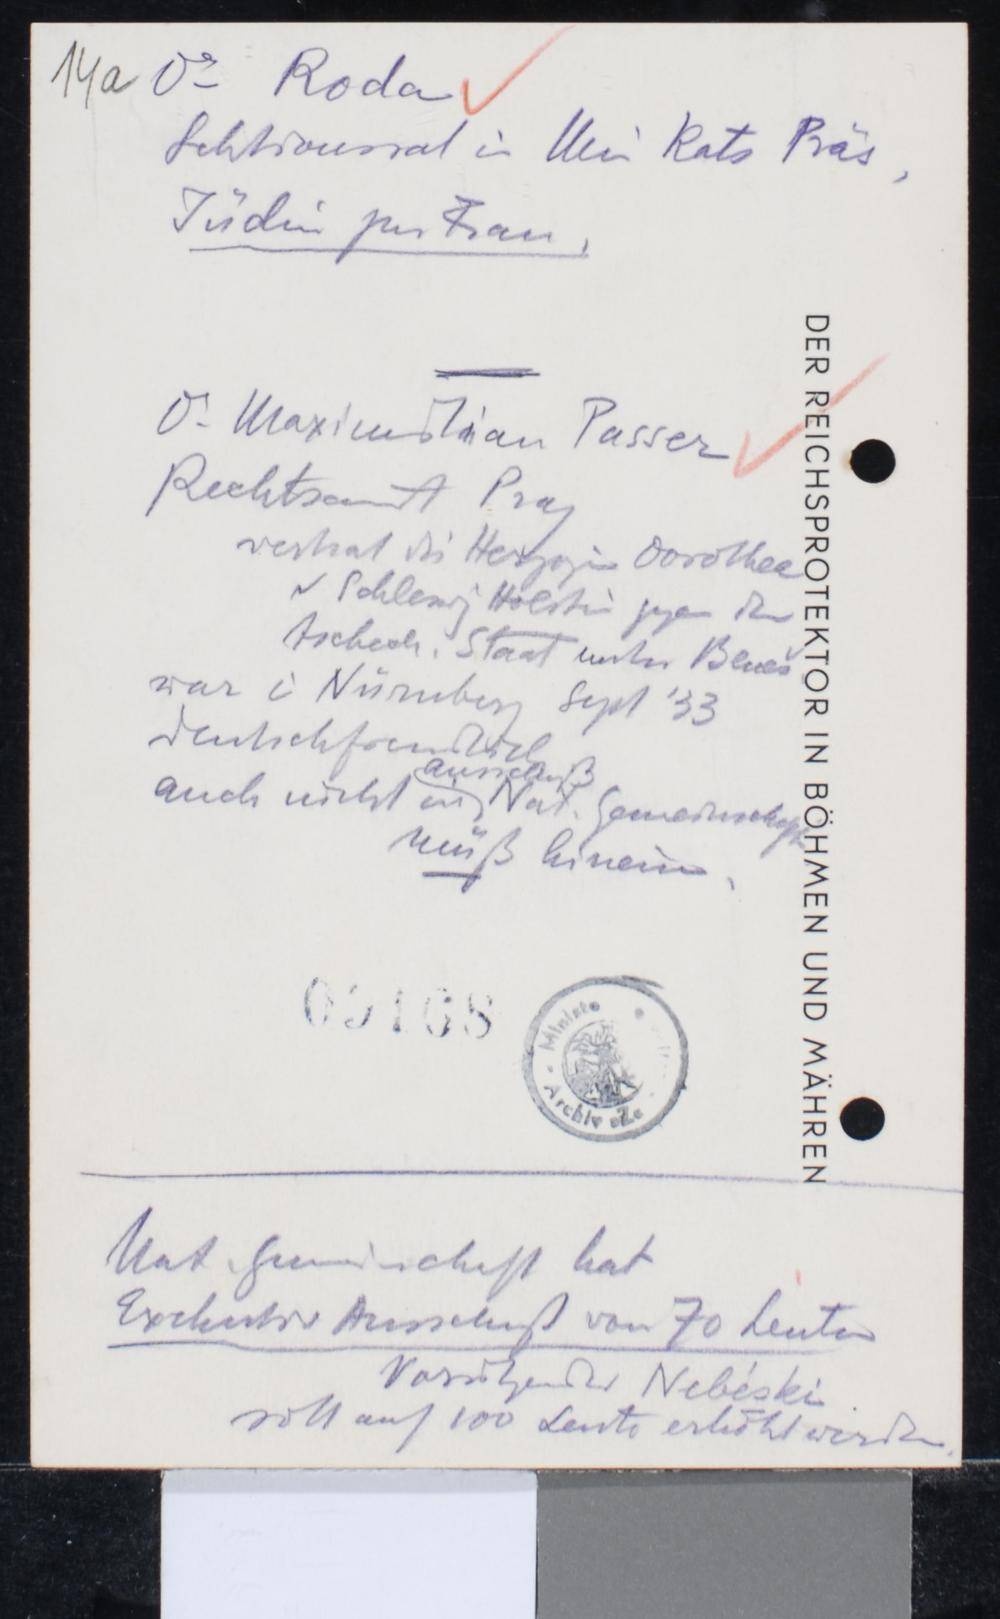 14a Dr Roda
Sektionsrat in Min Rats Präs,
Jüdin zur Frau,
Dr Maximilian Passer
Rechtsamt Prag
vertrat die Herzogin Dorothea
v Schleswig Holstein gegen den
tschech. Staat unter Beneš
war i Nürnberg Sept '33
deutschfreundlich
ausschuß
auch nicht in Nat. Gemeinschaft
muß hinein,
DER REICHSPROTEKTOR IN BÖHMEN UND MÄHREN
Ministe
Archiv
Nat Gemeinschaft hat
Exekutiv Ausschuß von 70 Leuten
Vorsitzender Nebéski
soll auf 100 Leute erhöht werden.